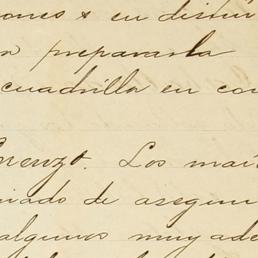 ones & en distin
prepararla
cuadrilla en co
orenzo. Los mai
iado de asegur
algunos muy ade